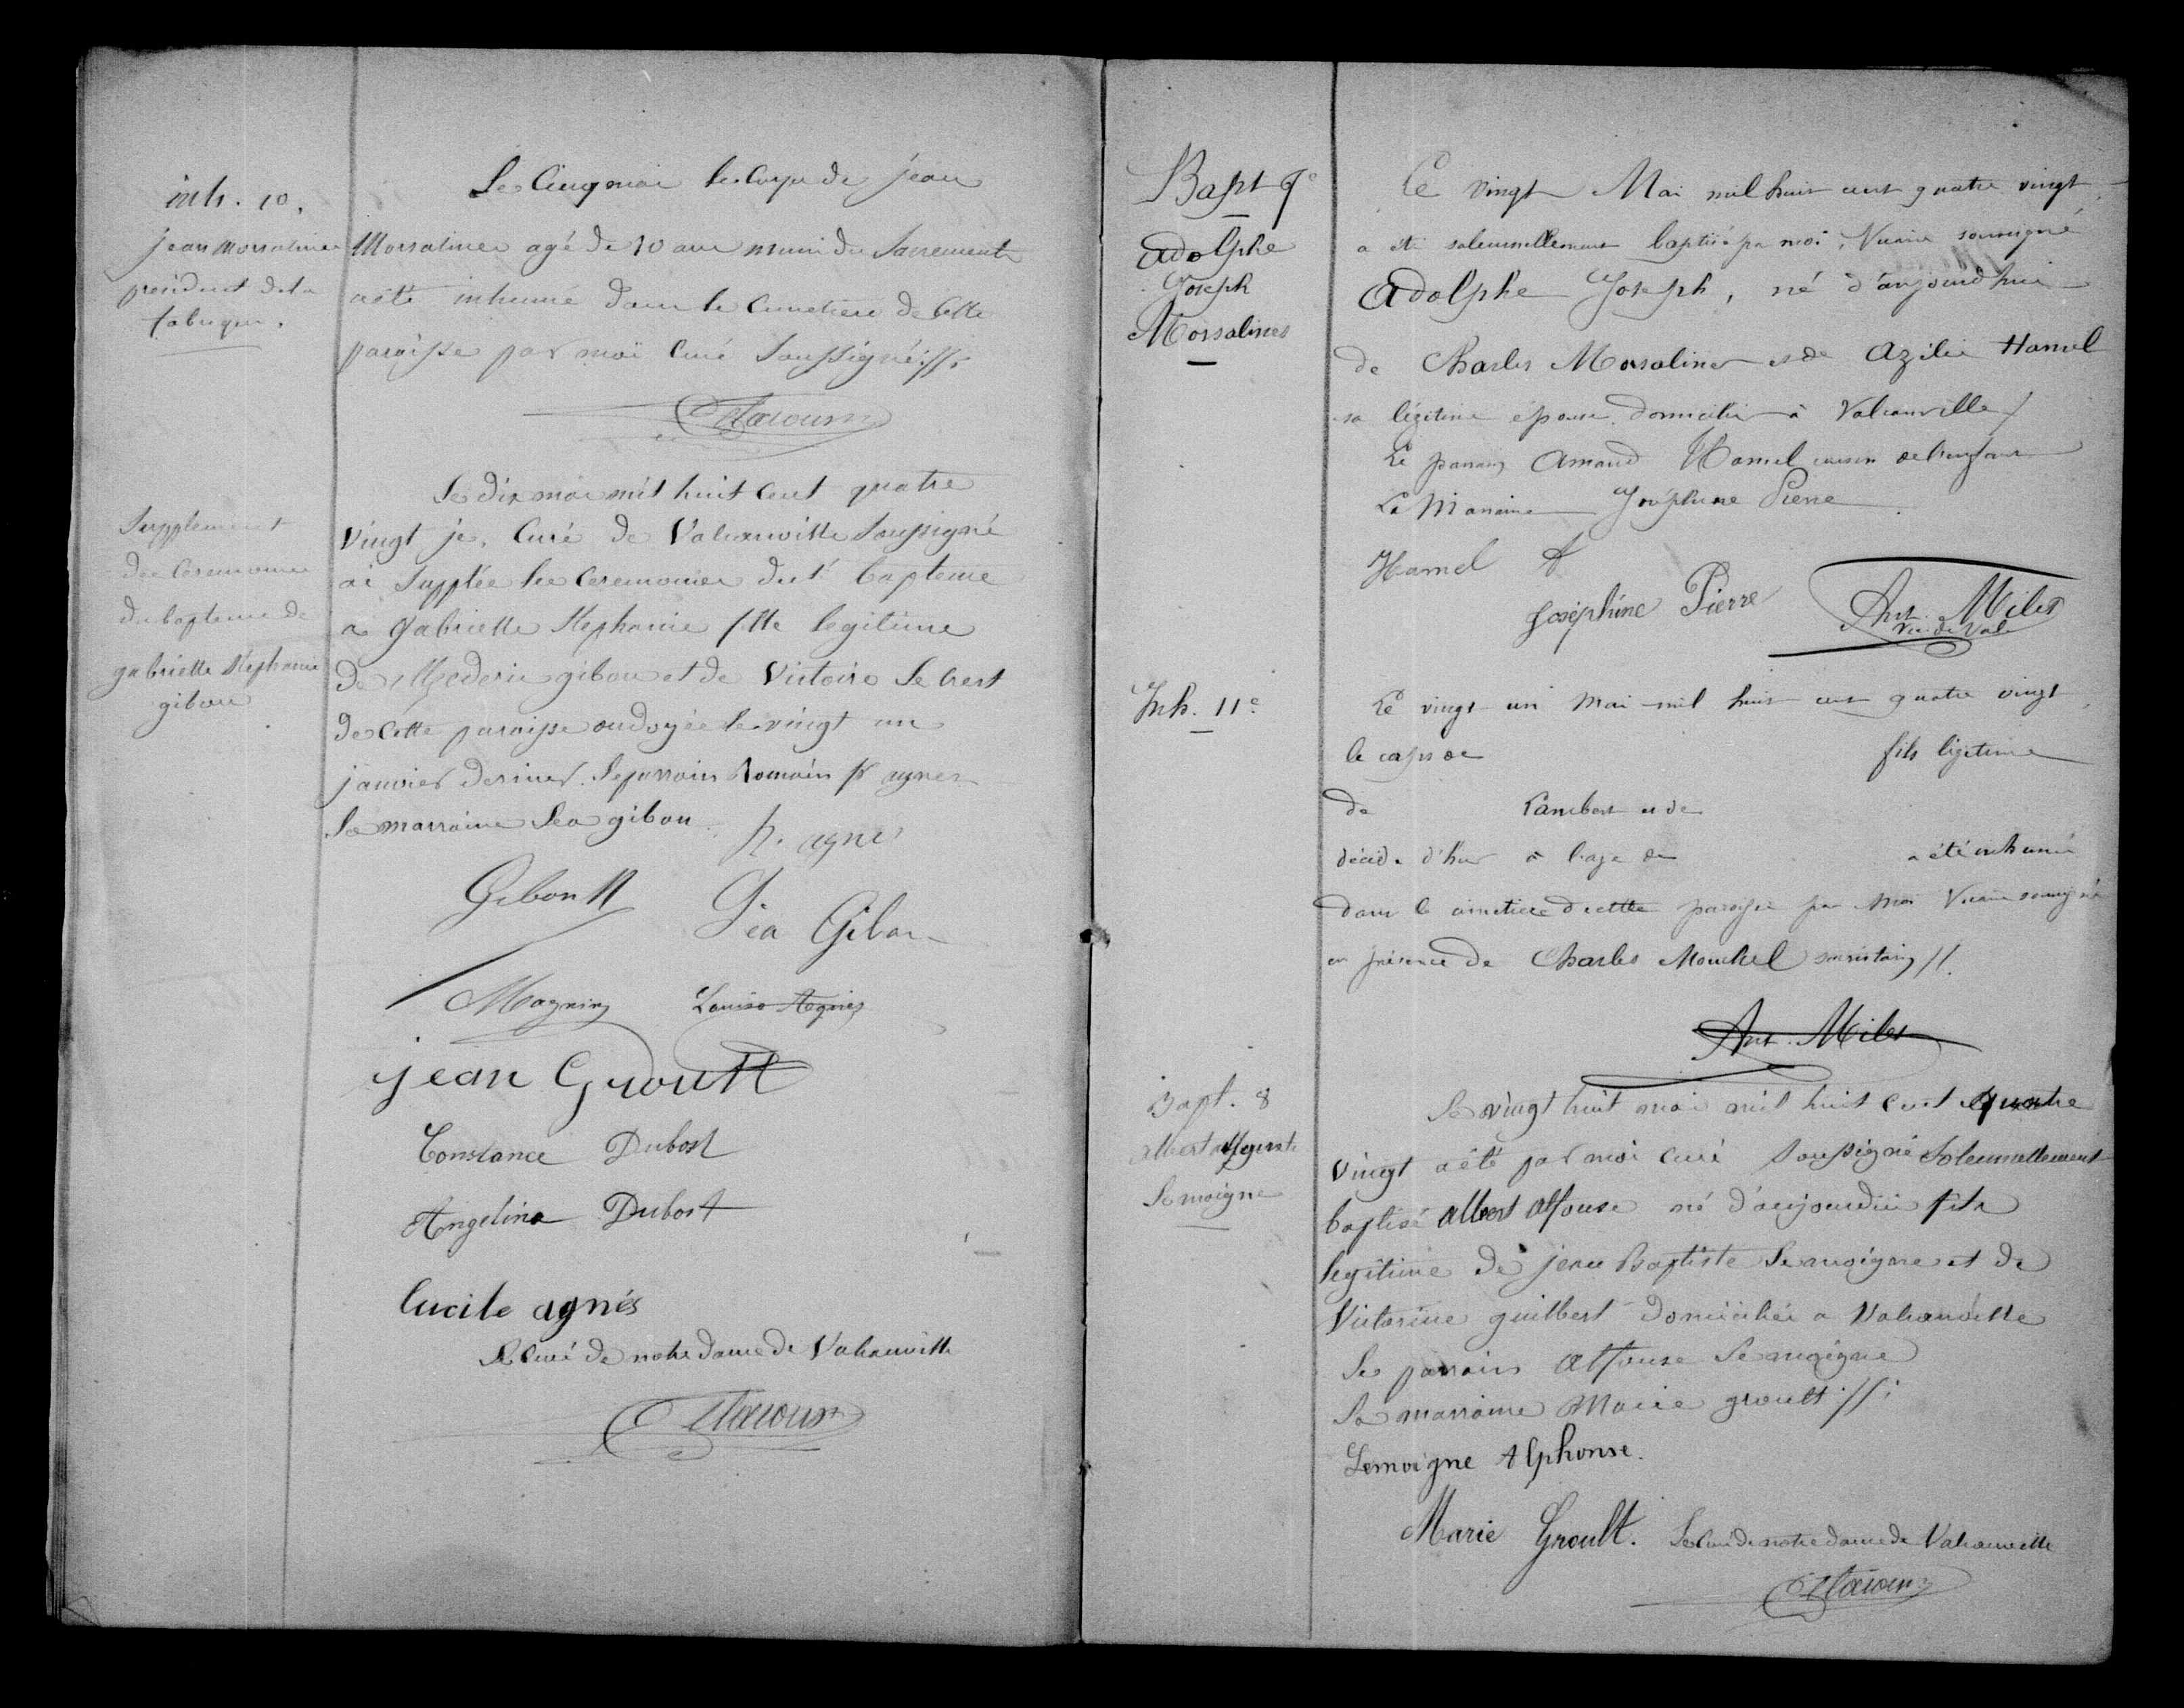 inh. 10.
jean Morsalines
président de la
fabrique.
Le Cinq mai le Corps de jean
Morsalines agé de 70 ans muni des Sacrements
a été inhumé dans le Cimetiere de Cette
paroisse par moi Curé Soussigné ://:
Supplement
des Ceremonies
du bapteme de
gabrielle Stephanie
gibou
Le dix mai mil huit Cent quatre
Vingt je, Curé de Valcanville Soussigné
ai Supplée les Ceremonies du St bapteme
a gabrielle Stephanie fille legitime
de Mederic gibou et de Victoire Le brest
de Cette paroisse ondoyée le vingt un
janvier dernier. Le parrain Romain agnes
La marraine Lea gibou
agnes
Gibou
Léa Gibou
Magnin Louise Agnès
jean Groult
Constance Dubost
Angelina Dubost
Lucile agnés
Le Curé de notre dame de Valcanville
Bapt 7e
Adolphe
Joseph
Morsalines
Le vingt Mai mil huit cent quatre vingt
a été solennellement baptisé par moi, Vicaire soussigné
Adolphe Joseph, né d'aujourd'hui
de Charles Morsalines et de Azélie Hamel
sa légitime épouse domiciliés à Valcanville /
Le parrain Amand Hamel cousin de l'enfant
La Marraine Joséphine Pierre
Hamel A
Joséphine Pierre Ant. Miles
Vic. de Valc.
Inh. 11e
Le vingt un Mai mil huit cent quatre vingt
le corps de fils légitime
de Lambert et de
décédé d'hier à l'age de a été inhumé
dans le cimetiere de cette paroisse par Moi Vicaire soussigné
en présence de Charles Mouchel sacristain //.
Ant. Miles
Bapt. 8
Albert
Lemoigne
Le vingt huit mai mil huit Cent quatre
Vingt a été par moi curé Soussigné Solennellement
baptisé Albert Alfonse né d'aujourdui fils
legitime de jean Baptiste Lemoigne et de
Victorine guilbert domiciliés a Valcanville
Le parrain Alfonse Lemoigne
La marraine Marie groult ://:
Lemoigne Alphonse.
Marie Groult. Le Curé de notre dame de Valcanville